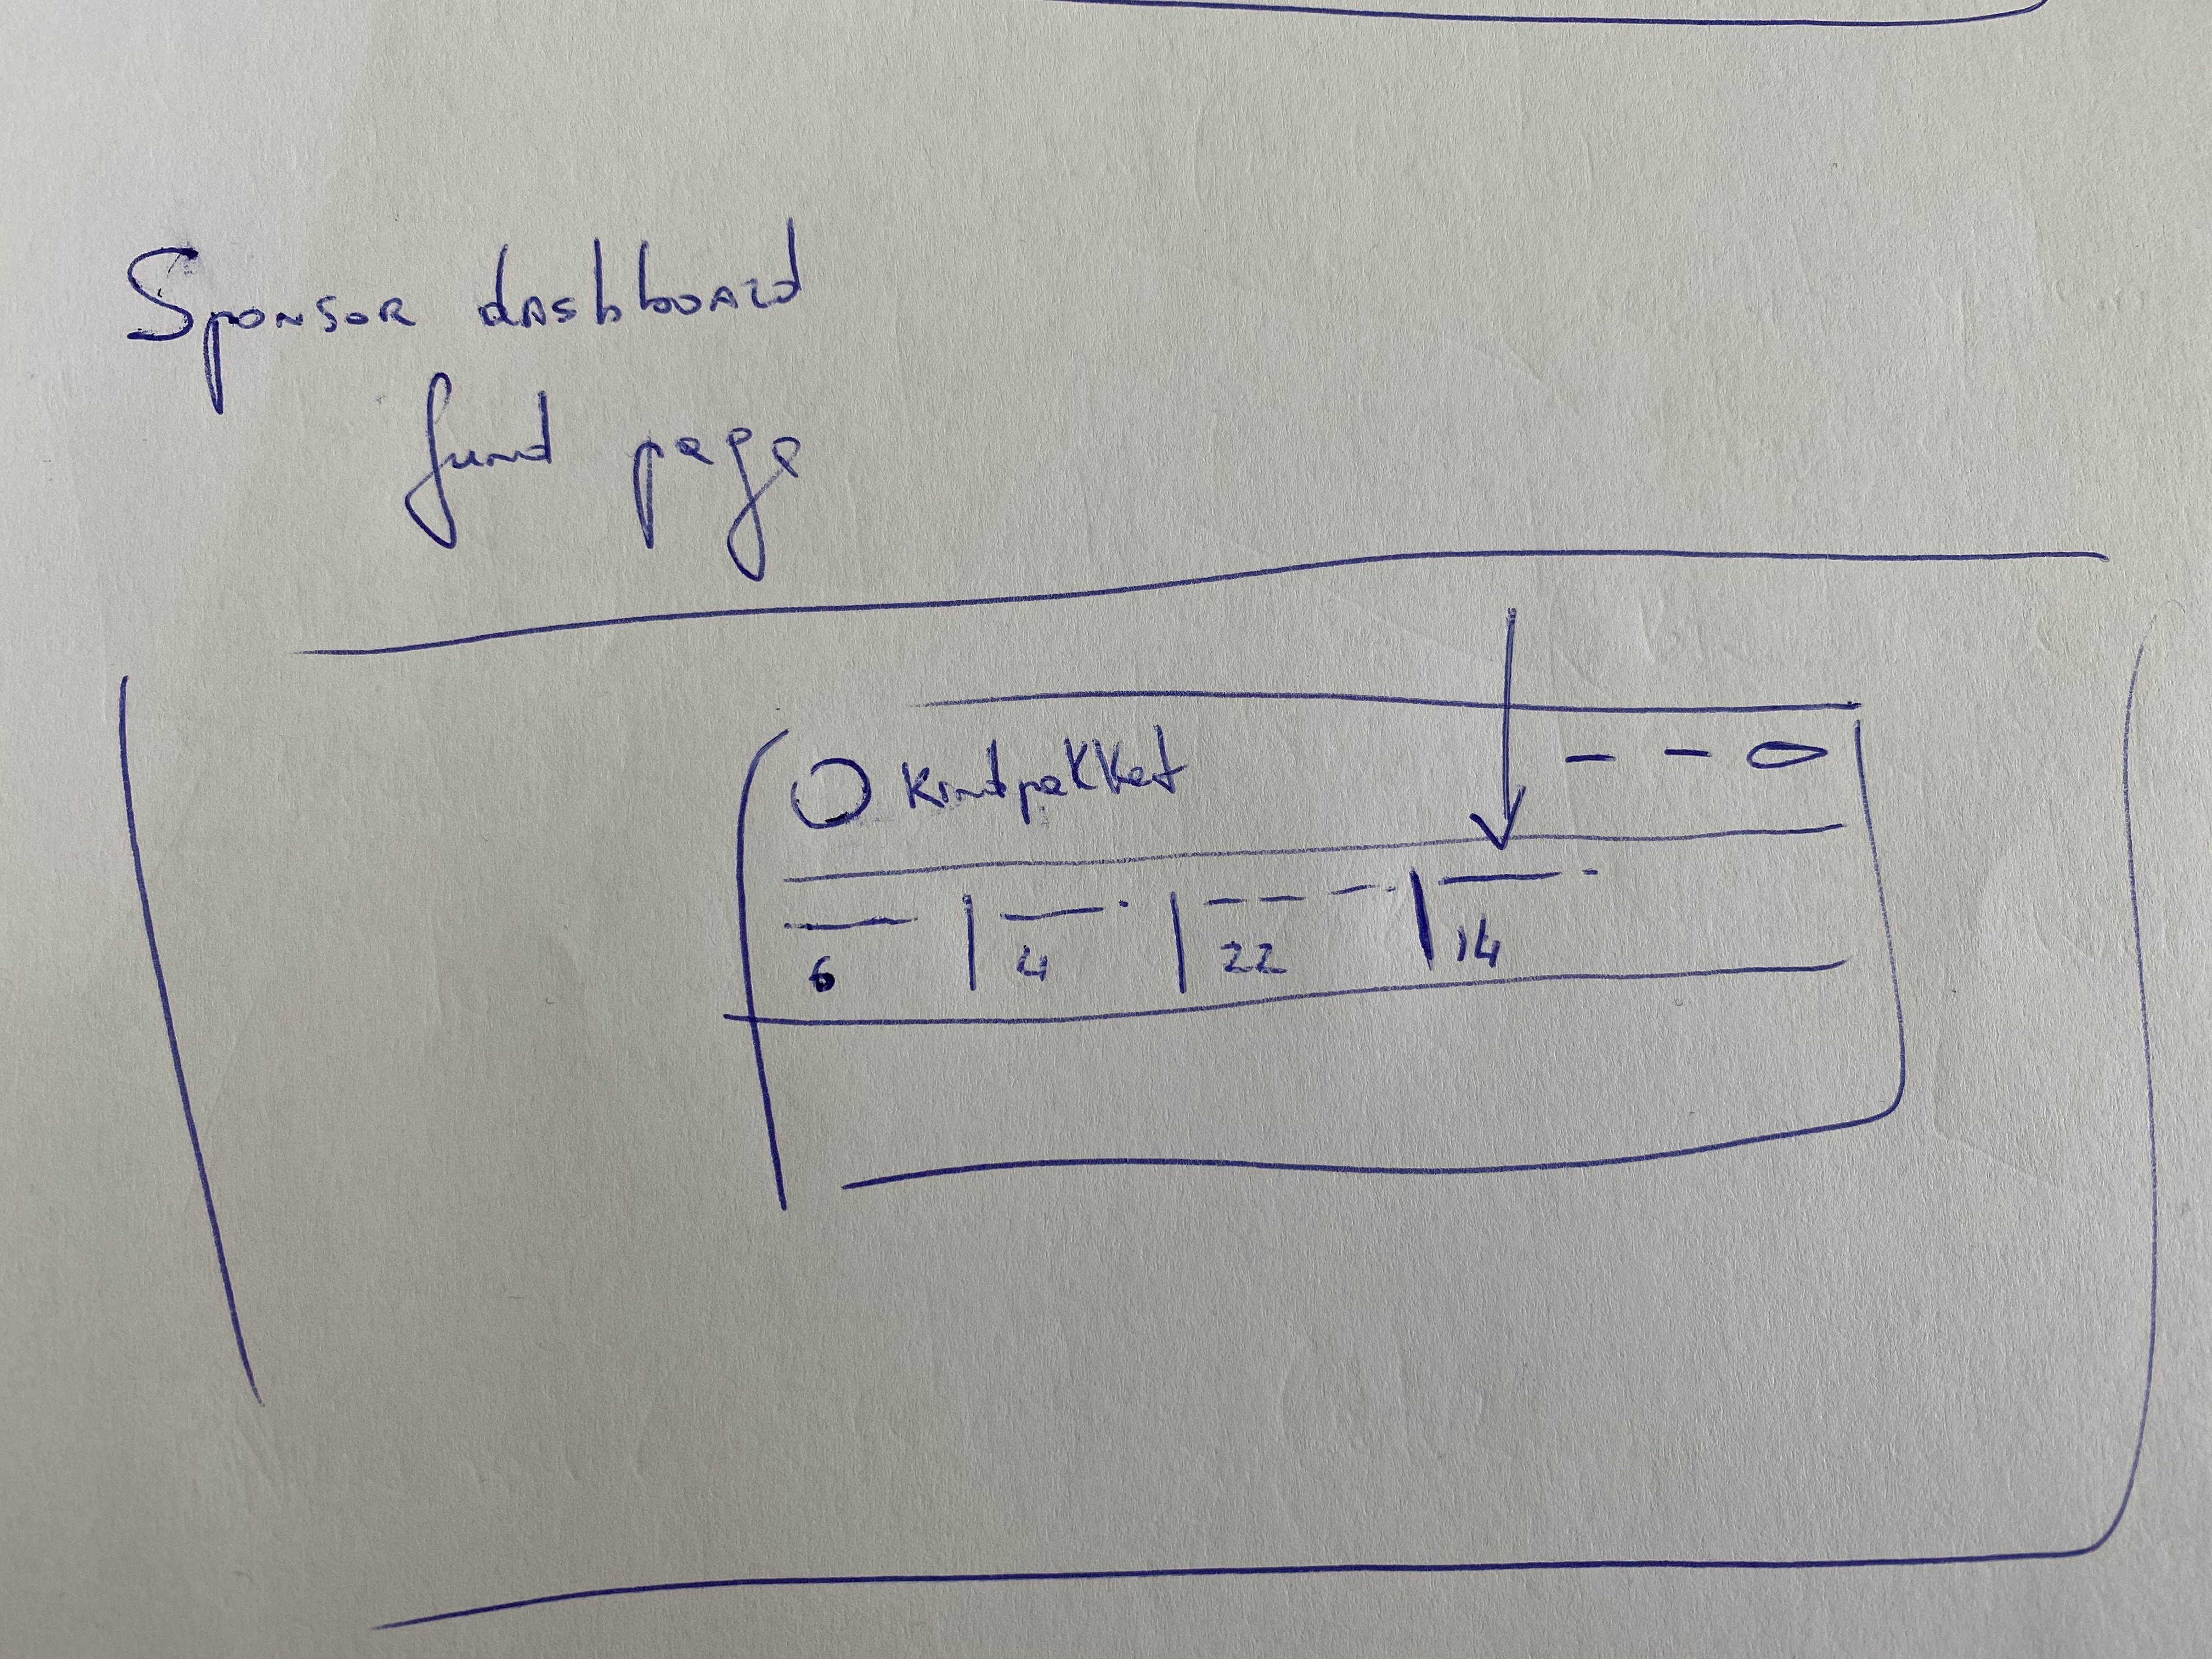 Sponsor dashboard
fund page
Kindpakket
6 4 22 14